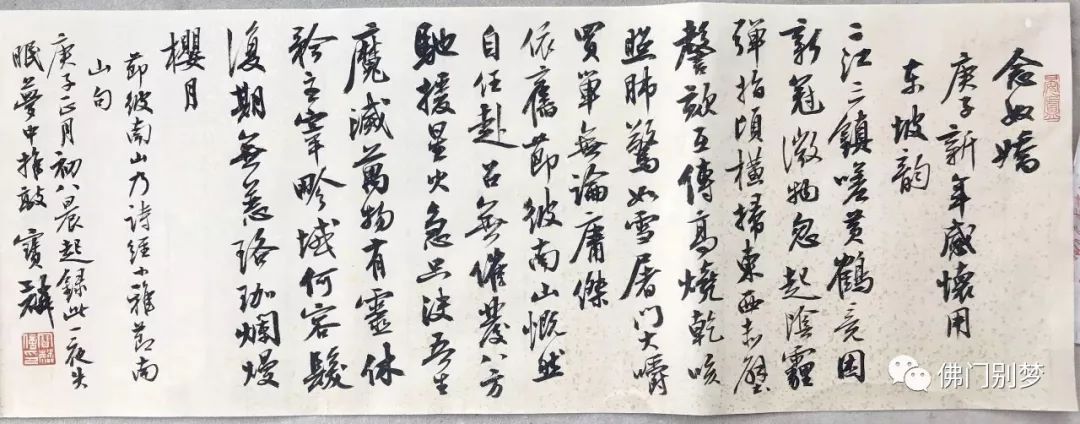 念奴嬌
庚子新年感懷用
东坡韵
二江三鎮嗟黄鶴竟因
新冠微物忽起陰霾
彈指頃橫掃東西赤壁
謦欬互傳高燒乾咳
照肺驚如雪屠門大嚼
買單無論庸傑
依舊節彼南山慨然
自任赴召無催發八方
馳援星火急吾生
魔滅萬物有靈休
矜主宰畛域何容髮
復期無恙珞珈爛熳
櫻月
節彼南山乃詩經小雅節南
山句
庚子正月初八晨起録此一夜失
眠夢中推敲 寶麟
佛门别梦